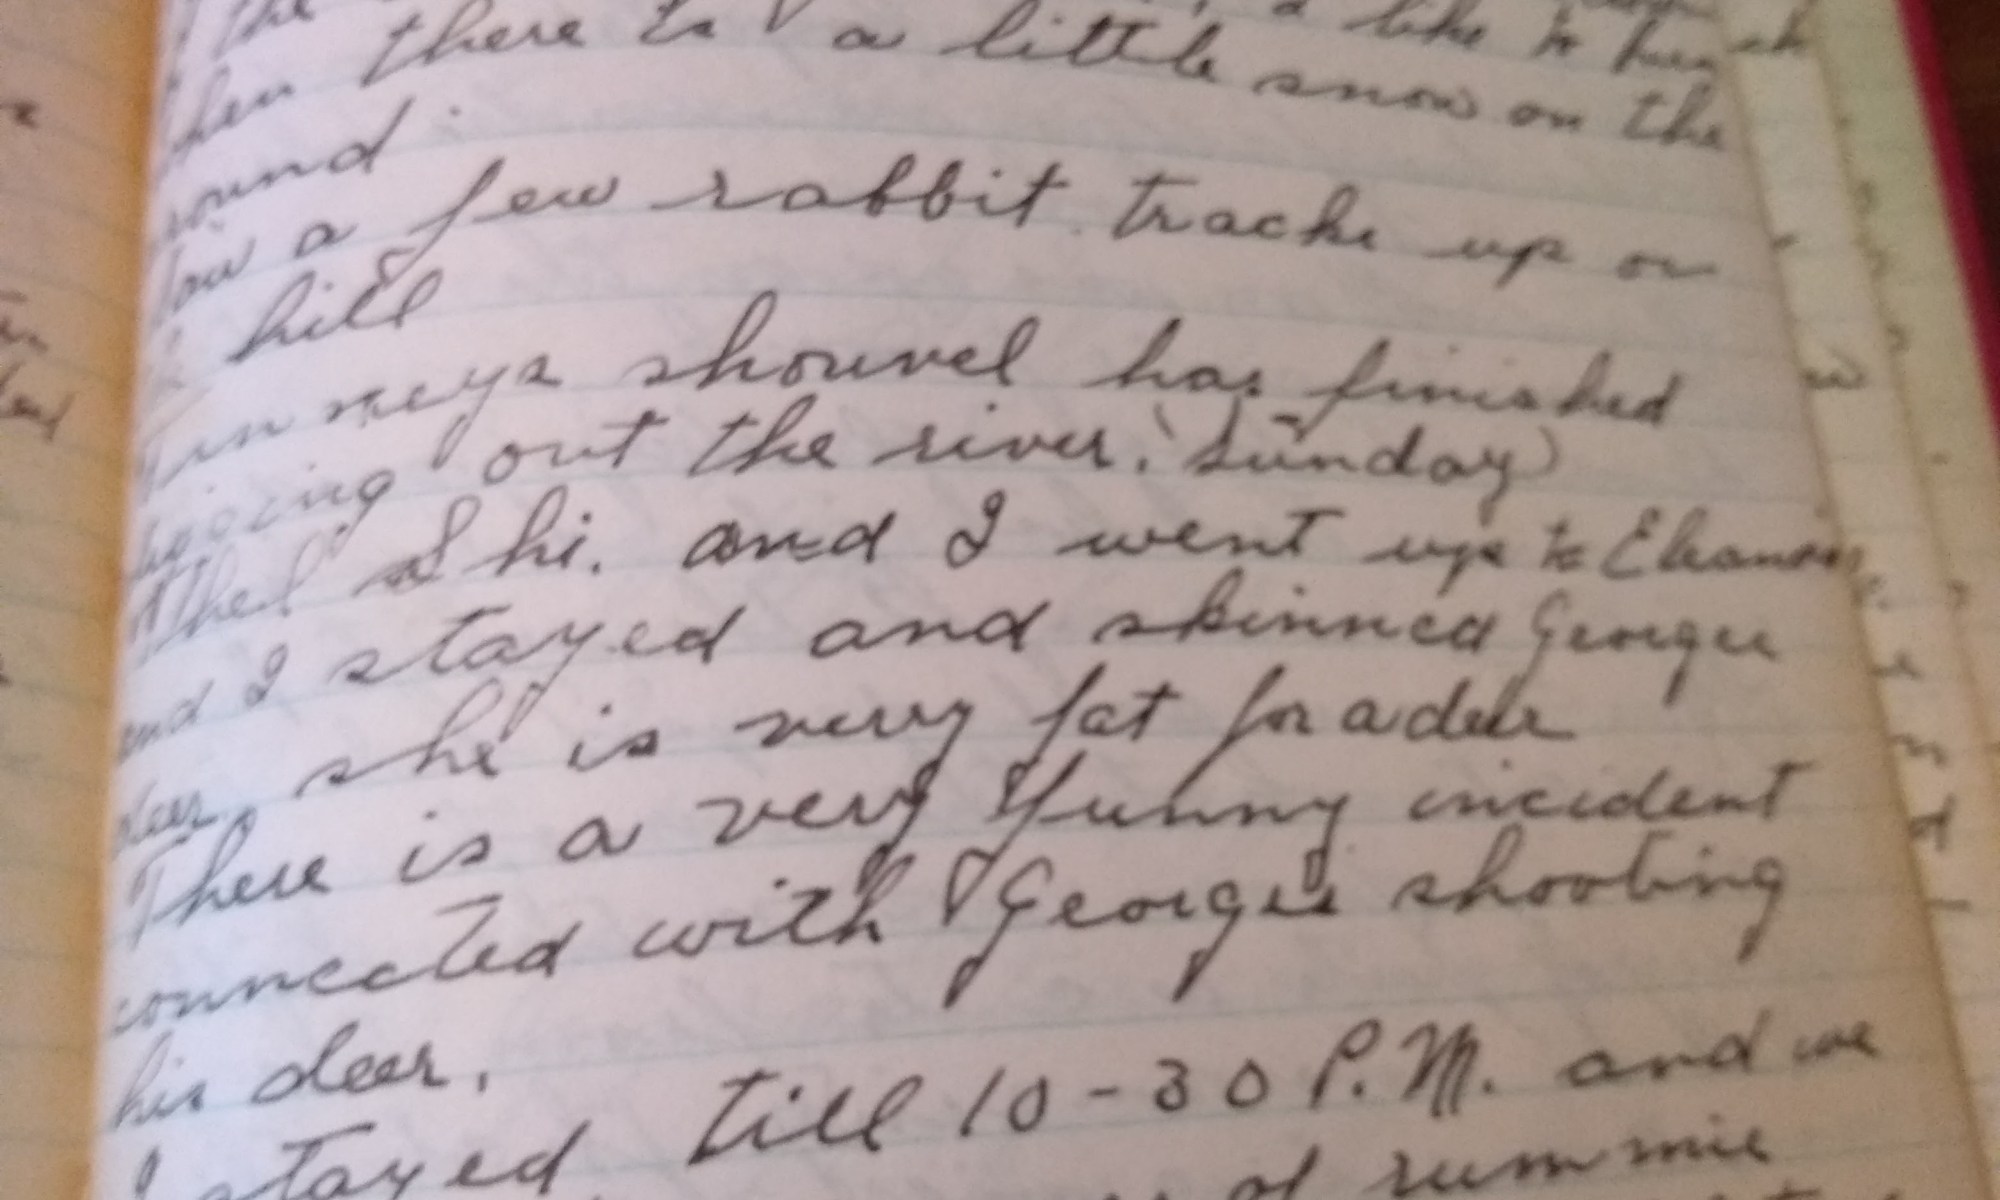 the like to
when there is a little snow on the
ground.
saw a few rabbit tracks up on
hill
Tinneys shouvel has finished
out the river. (Sunday)
Ethel Shi. and I went up to Eleanors
and I stayed and skinned Georges
deer, she is very fat for a deer
There is a very funny incident
connected with Georges shooting
his deer.
I stayed till 10-30 P.M. and we
of rummie